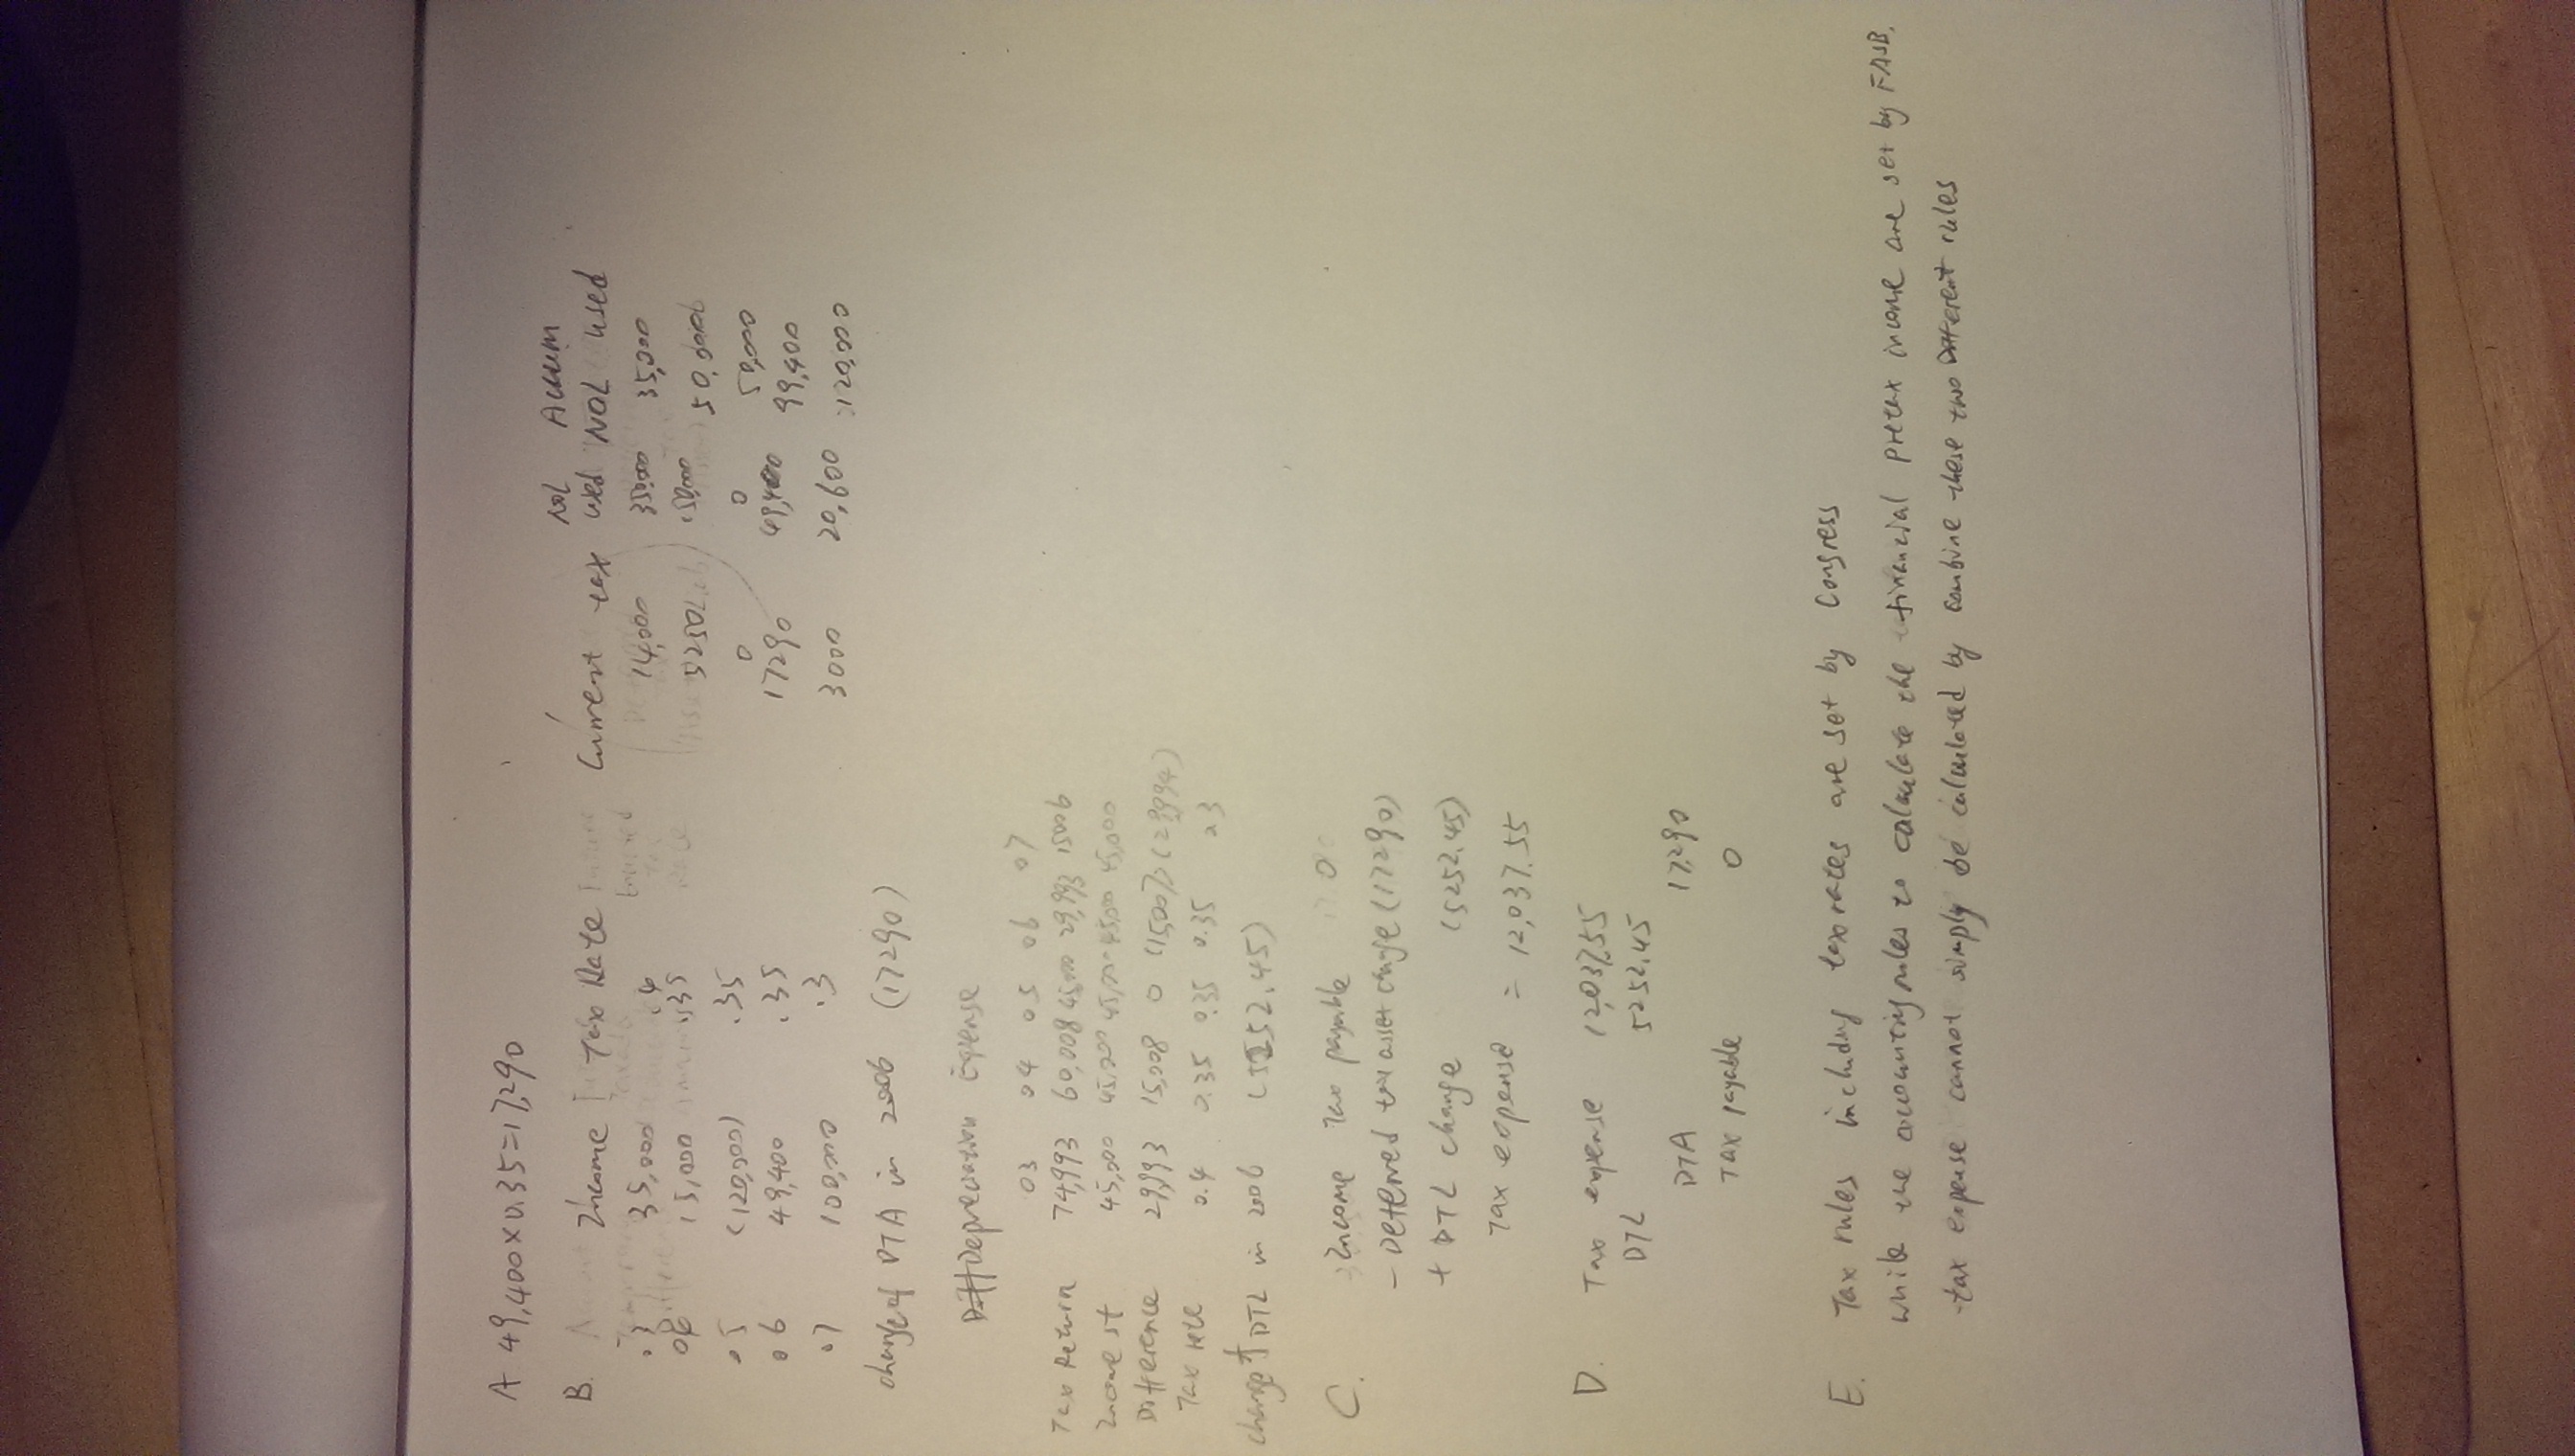 A 49,400 x 0.35 = 17,290
B. Income Tax Rate Current tax NOL used Accum NOL used
03 35,000 .4 14,000 35,000 35,000
04 15,000 .35 5250 15,000 50,000
05 (120,000) .35 0 0 50,000
06 49,400 .35 17290 49,400 99,400
07 100,000 .3 3000 20,600 120,000
change of DTA in 2006 (17290)
Depreciation Expense
03 04 05 06 07
Tax Return 74,993 60,008 45,000 29,993 15006
Income st 45,000 45,000 45,000 45,000 45,000
Difference 29,993 15,008 0 (15,007) (29994)
Tax rate 0.4 0.35 0.35 0.35 0.3
change of DTL in 2006 (5252.45)
C. Income Tax payable 0
- Deferred tax asset change (17290)
+ DTL change (5252.45)
Tax expense = 12,037.55
D. Tax expense 12,037.55
DTL 5252.45
DTA 17,290
Tax payable 0
E. Tax rules including tax rates are set by Congress
while the accounting rules to calculate the financial pretax income are set by FASB.
tax expense cannot simply be calculated by combine these two different rules